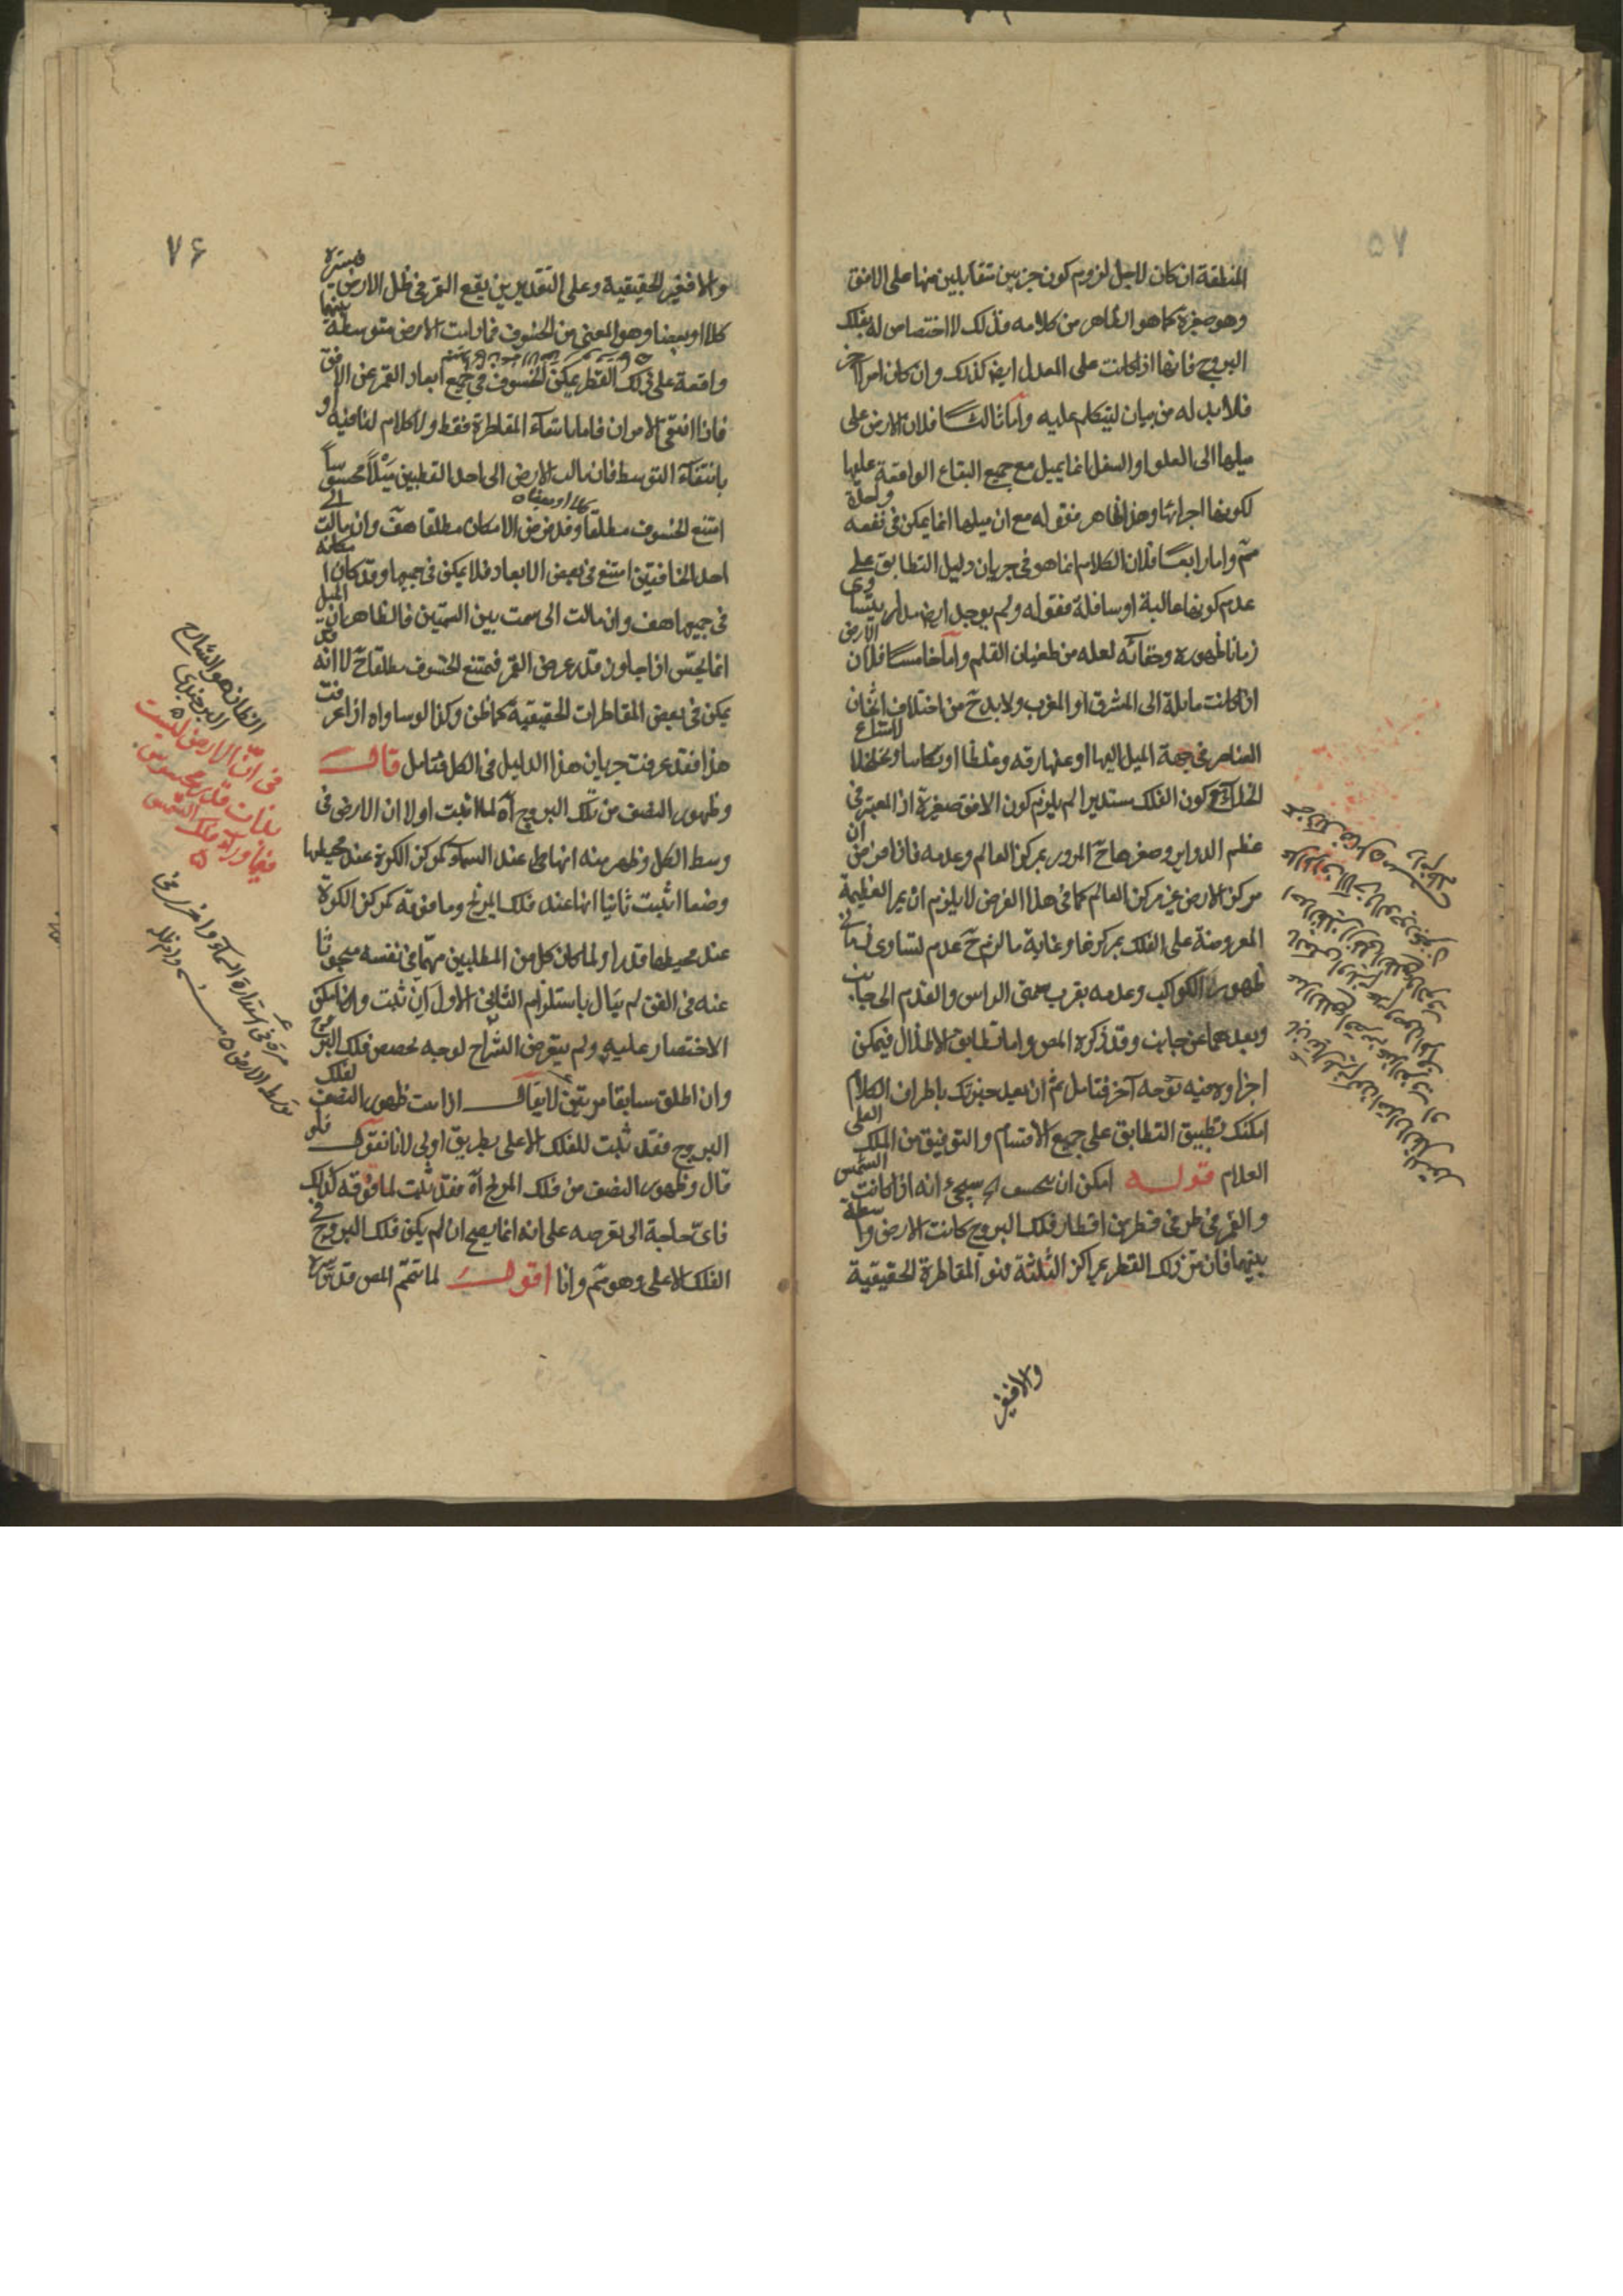 ٥٧
المنطقة ان كان لاجل لزوم كون جزئين متقابلين منها على الافق
وهو صغيرة كما هو الظاهر من كلامه فذلك لا اختصاص له بفلك
البروج فانها اذا كانت على المعدل ايض كذلك وان كان امرا آخر
فلا بد له من بيان ليتكلم عليه واما ثالثا فلان الارض على
ميلها الى العلو او السفل انما يميل مع جميع البقاع الواقعة عليها
لكونها اجزائها وهذا ظاهر فقوله مع ان ميلها انما يمكن في بقعة واحدة
مم واما رابعا فلان الكلام انما هو في جريان دليل التطابق على
عدم كونها عالية او سافلة فقوله ولم يوجد ارض مدار يتساوى
زمانا ظهوره وخفائه لعله من طغيان القلم واما خامسا فلان الارض
اذا كانت مايلة الى المشرق او المغرب ولا بد ح من اختلاف اثخان
العناصر في جهة الميل اليها او عنها رقة وغلظا او تكاثفا وتخلخلا لامتناع
الخلاء مع كون الفلك مستديرا لم يلزم كون الافق صغيرة اذ المعتبر في
عظم الدواير وصغرها ح المرور بمركز العالم وعدمه فاذا فرض ان
مركز الارض غير مركز العالم كما في هذا الفرض لا يلزم ان يمر العظيمة
المفروضة على الفلك بمركزها وغاية ما لزم ح عدم تساوى زمانى
ظهور الكواكب وعدمه بقرب سمتى الراس والقدم الى جانب
وبعدهما عن جانب وقد ذكره المص واما تطابق الاظلال فيمكن
اجراؤه فيه بوجه آخر فتامل ثم ان بعد خبرتك باطراف الكلام
امكنك تطبيق التطابق على جميع الاقسام والتوفيق من الملك العلى
العلام قوله امكن ان ينخسف اه سيجئ انه اذا كانت الشمس
والقمر في طرفى قطر من اقطار فلك البروج كانت الارض واسطة
بينهما فان مر ذلك القطر بمراكز الثلثة فهو المقاطرة الحقيقية
والافغير
٧٦
والا فغير الحقيقية وعلى التقديرين يقع القمر في ظل الارض فيستره
كلا او بعضا وهو المعنى من الخسوف فما دامت الارض متوسطة بينهما
واقعة على ذلك القطر يمكن الخسوف في جميع ابعاد القمر عن الافق
فاذا انتفى الامران فاما بانتفاء المقاطرة فقط ولا كلام لنا فيه او
بانتفاء التوسط فان مالت الارض الى احد القطبين ميلا محسوسا
امتنع الخسوف مطلقا وقد فرض الامكان مطلقا هف وان مالت الى
احد الخافقين امتنع في بعض الابعاد فلا يمكن في جميعها وقد كان امكانه
في جميعها هف وان مالت الى سمت بين السمتين فالظاهر ان الميل
انما يحس اذا جاوز قدر عرض القمر فيمتنع الخسوف مطلقا ح لا انه قد
يمكن في بعض المقاطرات الحقيقية كما ظن وكذا لو ساواه اذا عرفت
هذا فقد عرفت جريان هذا الدليل في الكل فتامل قال
وظهور النصف من تلك البروج آه لما اثبت اولا ان الارض في
وسط الكل وظهر منه انها على عند السماء كمركز الكرة عند محيطها
وضعا اثبت ثانيا انها عند فلك المريخ وما فوقه كمركز الكرة
عند محيطها قدرا ولما كان كل من المطلبين مهما في نفسه مبحوثا
عنه في الفن لم يبال باستلزام الثانى الاول اين ثبت وان امكن
الاختصار عليه ولم يتعرض الشراح لوجه تخصص فلك البروج
وان اطلق سابقا مرتين لا يقال اذا ثبت ظهور النصف لفلك
البروج فقد ثبت للفلك الاعلى بطريق اولى لانا نقول فلو
قال وظهور النصف من فلك المريخ آه فقد ثبت لما فوقه كذلك
فاى حاجة الى تعرضه على انه انما يصح ان لم يكن فلك البروج في
الفلك الاعلى وهو مم وانا اقول لما تمم المص قد سره
الظان هو الشارح
البرجندى
في ان الارض ليست
بذات قدر محسوس
فيما وراء فلك الشمس
مرة في استدارة السماء واخرى في
توسط الارض